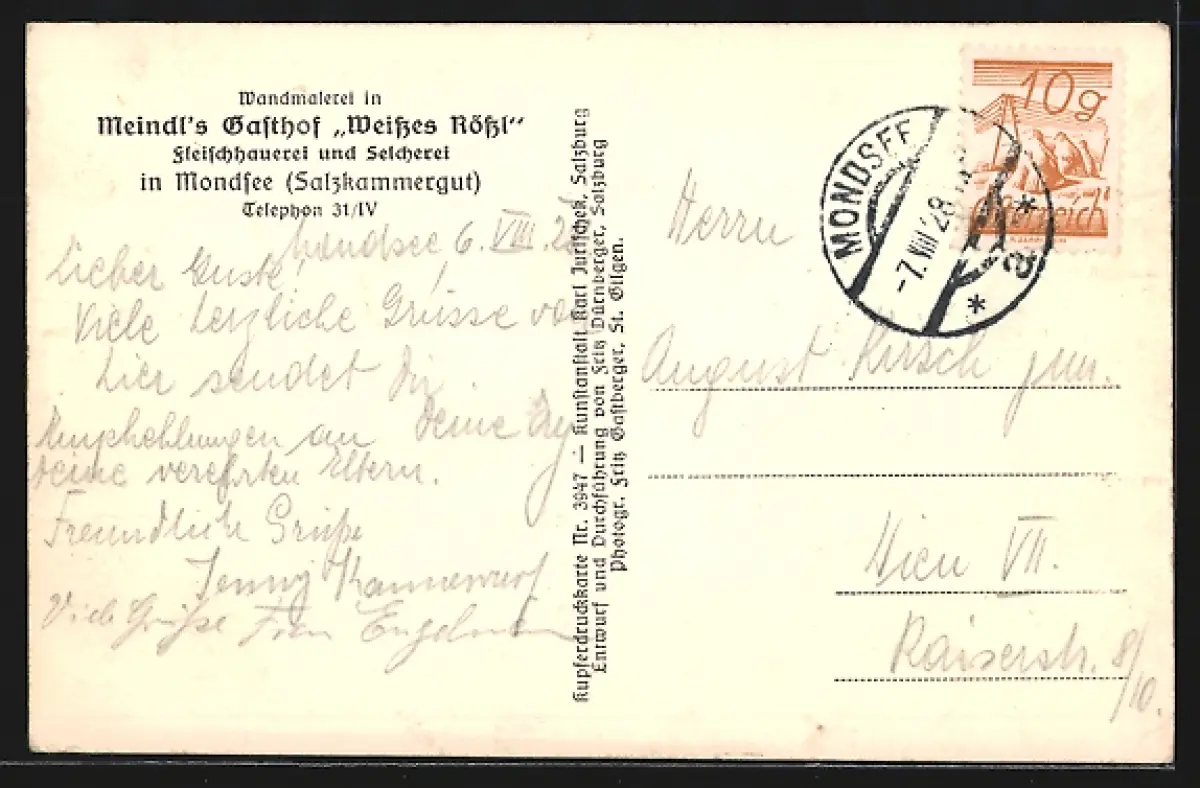 Wandmalerei in
Meindl's Gasthof „Weißes Rößl“
Fleischhauerei und Selcherei
in Mondsee (Salzkammergut)
Telephon 31/IV
Mondsee 6. VIII. 28
Lieber Gustl!
Viele herzliche Grüsse von
hier sendet Dir
Deine
Empfehlungen an
deine verehrten Eltern.
Freundliche Grüße
Jenny
Viele Grüße Frau
Kupferdruckkarte Nr. 3947 — Kunstanstalt Karl Jurischek, Salzburg
Entwurf und Durchführung von Fritz Dürnberger, Salzburg
Photogr. Fritz Gastberger, St. Gilgen.
10g
Österreich
MONDSEE
-7.VIII 28
* a *
Herrn
August Kirsch jun.
Wien VII.
Kaiserstr. 8/10.